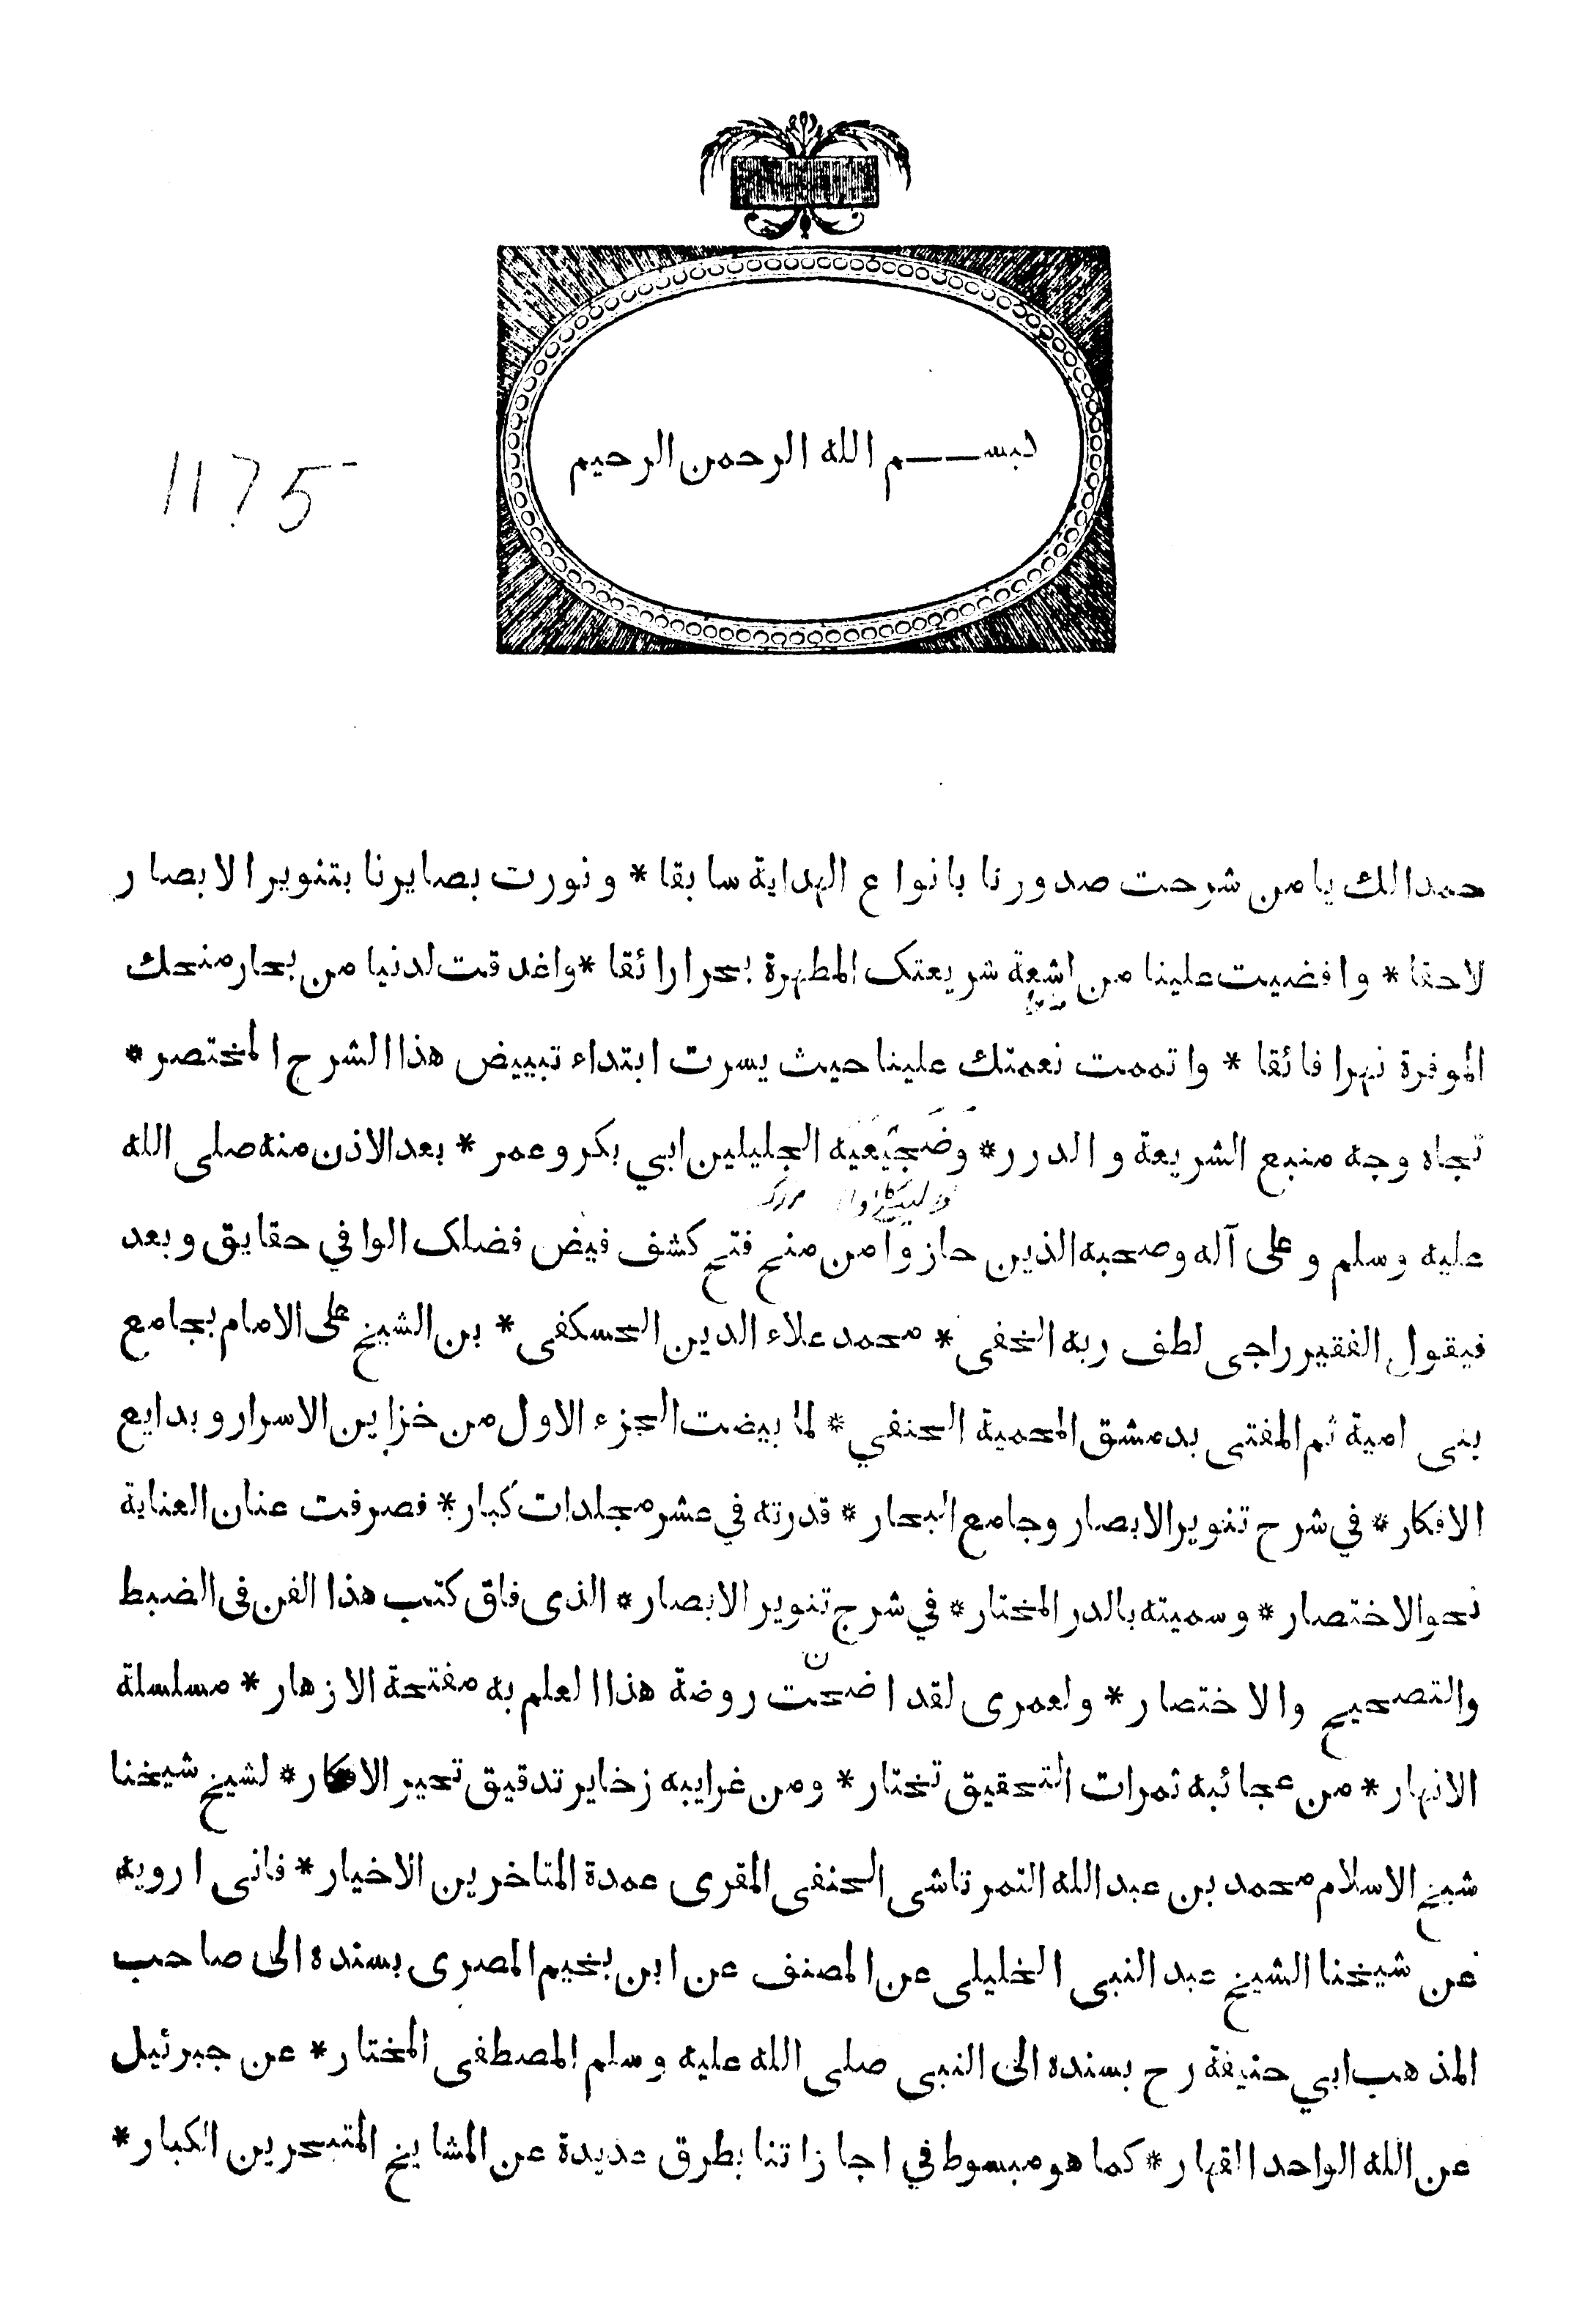 بســـم الله الرحمن الرحيم
1175
حمدا لك يا من شرحت صدورنا بانواع الهداية سابقا * ونورت بصايرنا بتنوير الابصار
لاحقا * وافضيت علينا من اشعة شريعتك المطهرة بحرا رائقا * واغدقت لدنيا من بحار منحك
الموفرة نهرا فائقا * واتممت نعمتك علينا حيث يسرت ابتداء تبييض هذا الشرح المختصر *
تجاه وجه منبع الشريعة والدرر * وضجيعيه الجليلين ابي بكر وعمر * بعد الاذن منه صلى الله
عليه وسلم وعلى آله وصحبه الذين حازوا من منح فتح كشف فيض فضلك الوافي حقايق وبعد
فيقول الفقير راجى لطف ربه الخفى * محمد علاء الدين الحسكفى * بن الشيخ على الامام بجامع
بنى امية ثم المفتى بدمشق المحمية الحنفي * لما بيضت الجزء الاول من خزاين الاسرار وبدايع
الافكار * في شرح تنوير الابصار وجامع البحار * قدرته في عشر مجلدات كبار * فصرفت عنان العناية
نحو الاختصار * وسميته بالدر المختار * في شرح تنوير الابصار * الذى فاق كتب هذا الفن فى الضبط
والتصحيح والاختصار * ولعمرى لقد اضحت روضة هذا العلم به مفتحة الازهار * مسلسلة
الانهار * من عجائبه ثمرات التحقيق تختار * ومن غرايبه زخاير تدقيق تحير الافكار * لشيخ شيخنا
شيخ الاسلام محمد بن عبد الله التمرتاشى الحنفى المقرى عمدة المتاخرين الاخيار * فانى ارويه
عن شيخنا الشيخ عبد النبى الخليلى عن المصنف عن ابن بخيم المصرى بسنده الى صاحب
المذهب ابي حنيفة رح بسنده الى النبى صلى الله عليه وسلم المصطفى المختار * عن جبرئيل
عن الله الواحد القهار * كما هو مبسوط في اجازاتنا بطرق عديدة عن المشايخ المتبحرين الكبار *